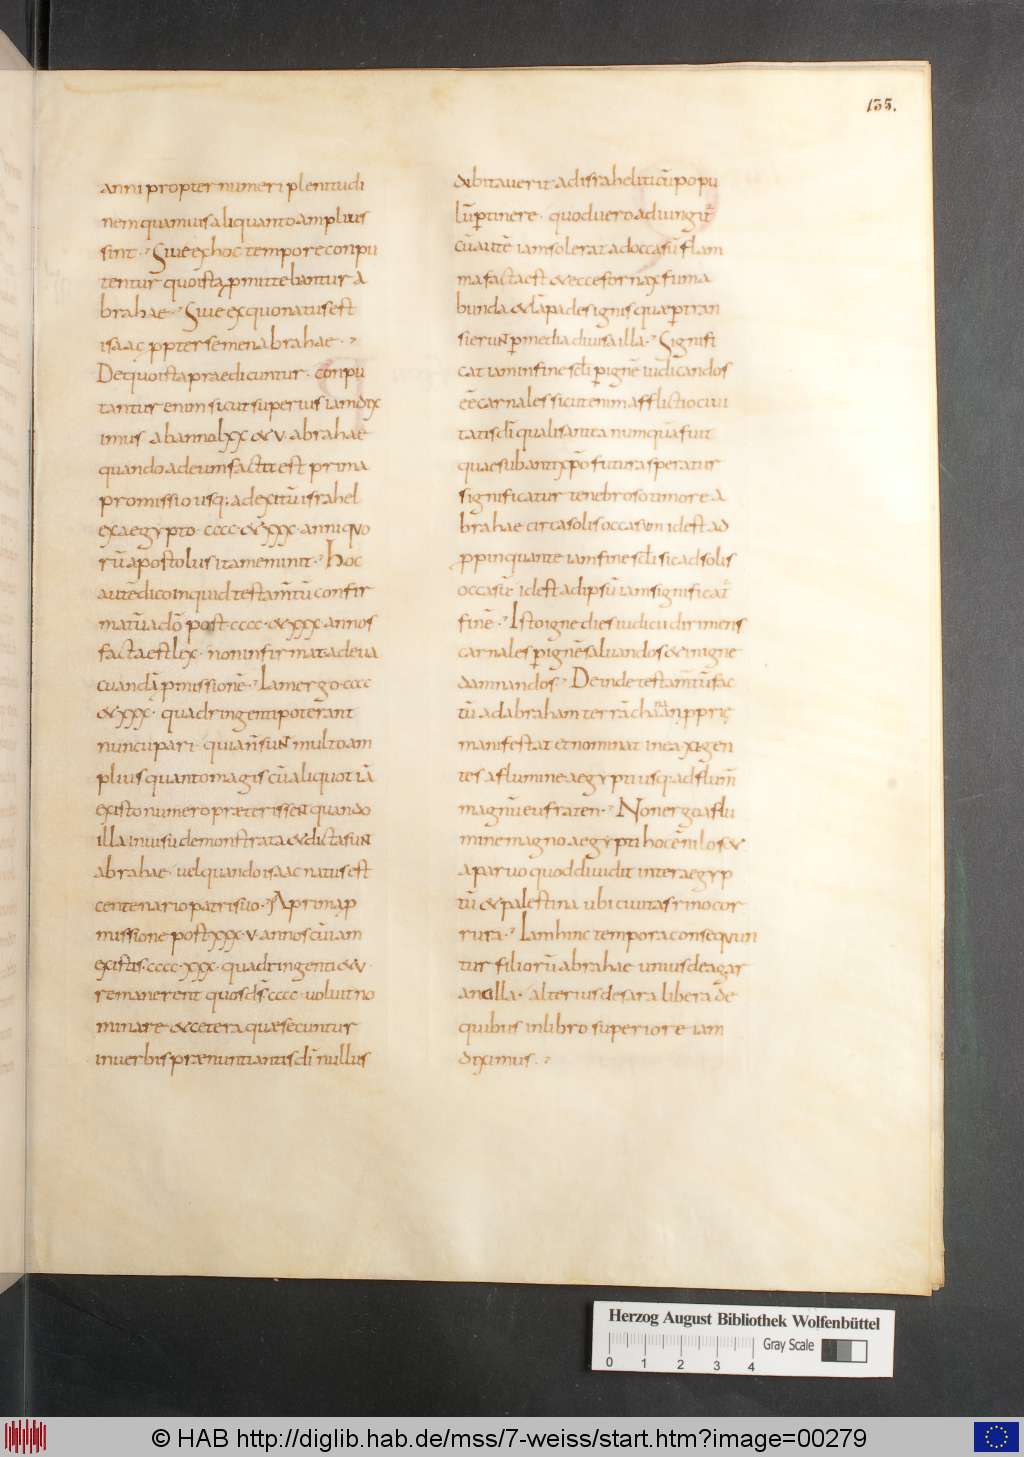 135.
anni propter numeri plenitudi
nem quamuis aliquanto amplius
sint · Siue ex hoc tempore conpu
tentur quo ista ꝓmittebantur A
brahae · Siue ex quo natus est
isaac ꝓpter semen abrahae ·
De quo ista praedicuntur · conpu
tantur enim sicut superius iam dix
imus ab anno lxx & v · abrahae
quando ad eum facta est prima
promissio usq; ad exitū israhel
ex aegypto · cccc · & xxx · anni quo
rū apostolus ita meminit · hoc
autē dico inquid testam̄tū confir
matū a dō post · cccc · & xxx · annos
facta est lex · non infirmat ad eua
cuandā ꝓmissionē · Iam ergo · cccc
& xxx · quadringenti poterant
nuncupari · quia ñ sunt multo am
plius quanto magis cū aliquot iā
ex isto numero præterissent quando
illa in uisu demonstrata & dicta sunt
abrahae · uel quando isaac natus est
centenario patri suo · A prima ꝓ
missione post xxx · v · annos cū iam
ex istis · cccc · xxx · quadringenti & v ·
remanerent quos dš · cccc · uoluit no
minare & cetera quæ secuntur
in uerbis prænuntiantis dī nullus
dubitauerit ad israheliticū popu
lū ꝑtinere · quod uero adiungit̃
cū autē iam sol erat ad occasū flam
ma facta est & ecce fornax fuma
bunda & lāpades ignis quæ ꝑtran
sierunt ꝑ media diuisa illa · Signifi
cat iam in fine sc̄li ꝑ ignē iudicandos
eē carnales sicut enim afflictio ciui
tatis dī qualis antea numquā fuit
quae sub antixp̄o futura speratur
significatur tenebroso timore A
brahae circa solis occasum id est ad
ꝓpinquante iam fine sc̄li sic ad solis
occasū id est ad ipsū iam significat̃
finē · Isto igne dies iudicii dirimens
carnales ꝑ ignē saluandos & in igne
damnandos · Deinde testam̄tū fac
tū ad abraham terrā chanaan ꝓprie
manifestat et nominat in ea · xi · gen
tes a flumine aegypti usq; ad flum̄
magnū eufraten · Non ergo a flu
mine magno aegypti hoc ē nilo s&
a paruo quod diuidit inter aegyp
tū & palestina ubi ciuitas rinocor
rura · Iam hinc tempora consequun
tur filiorū abrahae unius de agar
ancilla · alterius de sara libera de
quibus in libro superiore iam
diximus ·
Herzog August Bibliothek Wolfenbüttel
Gray Scale
0 1 2 3 4
© HAB http://diglib.hab.de/mss/7-weiss/start.htm?image=00279